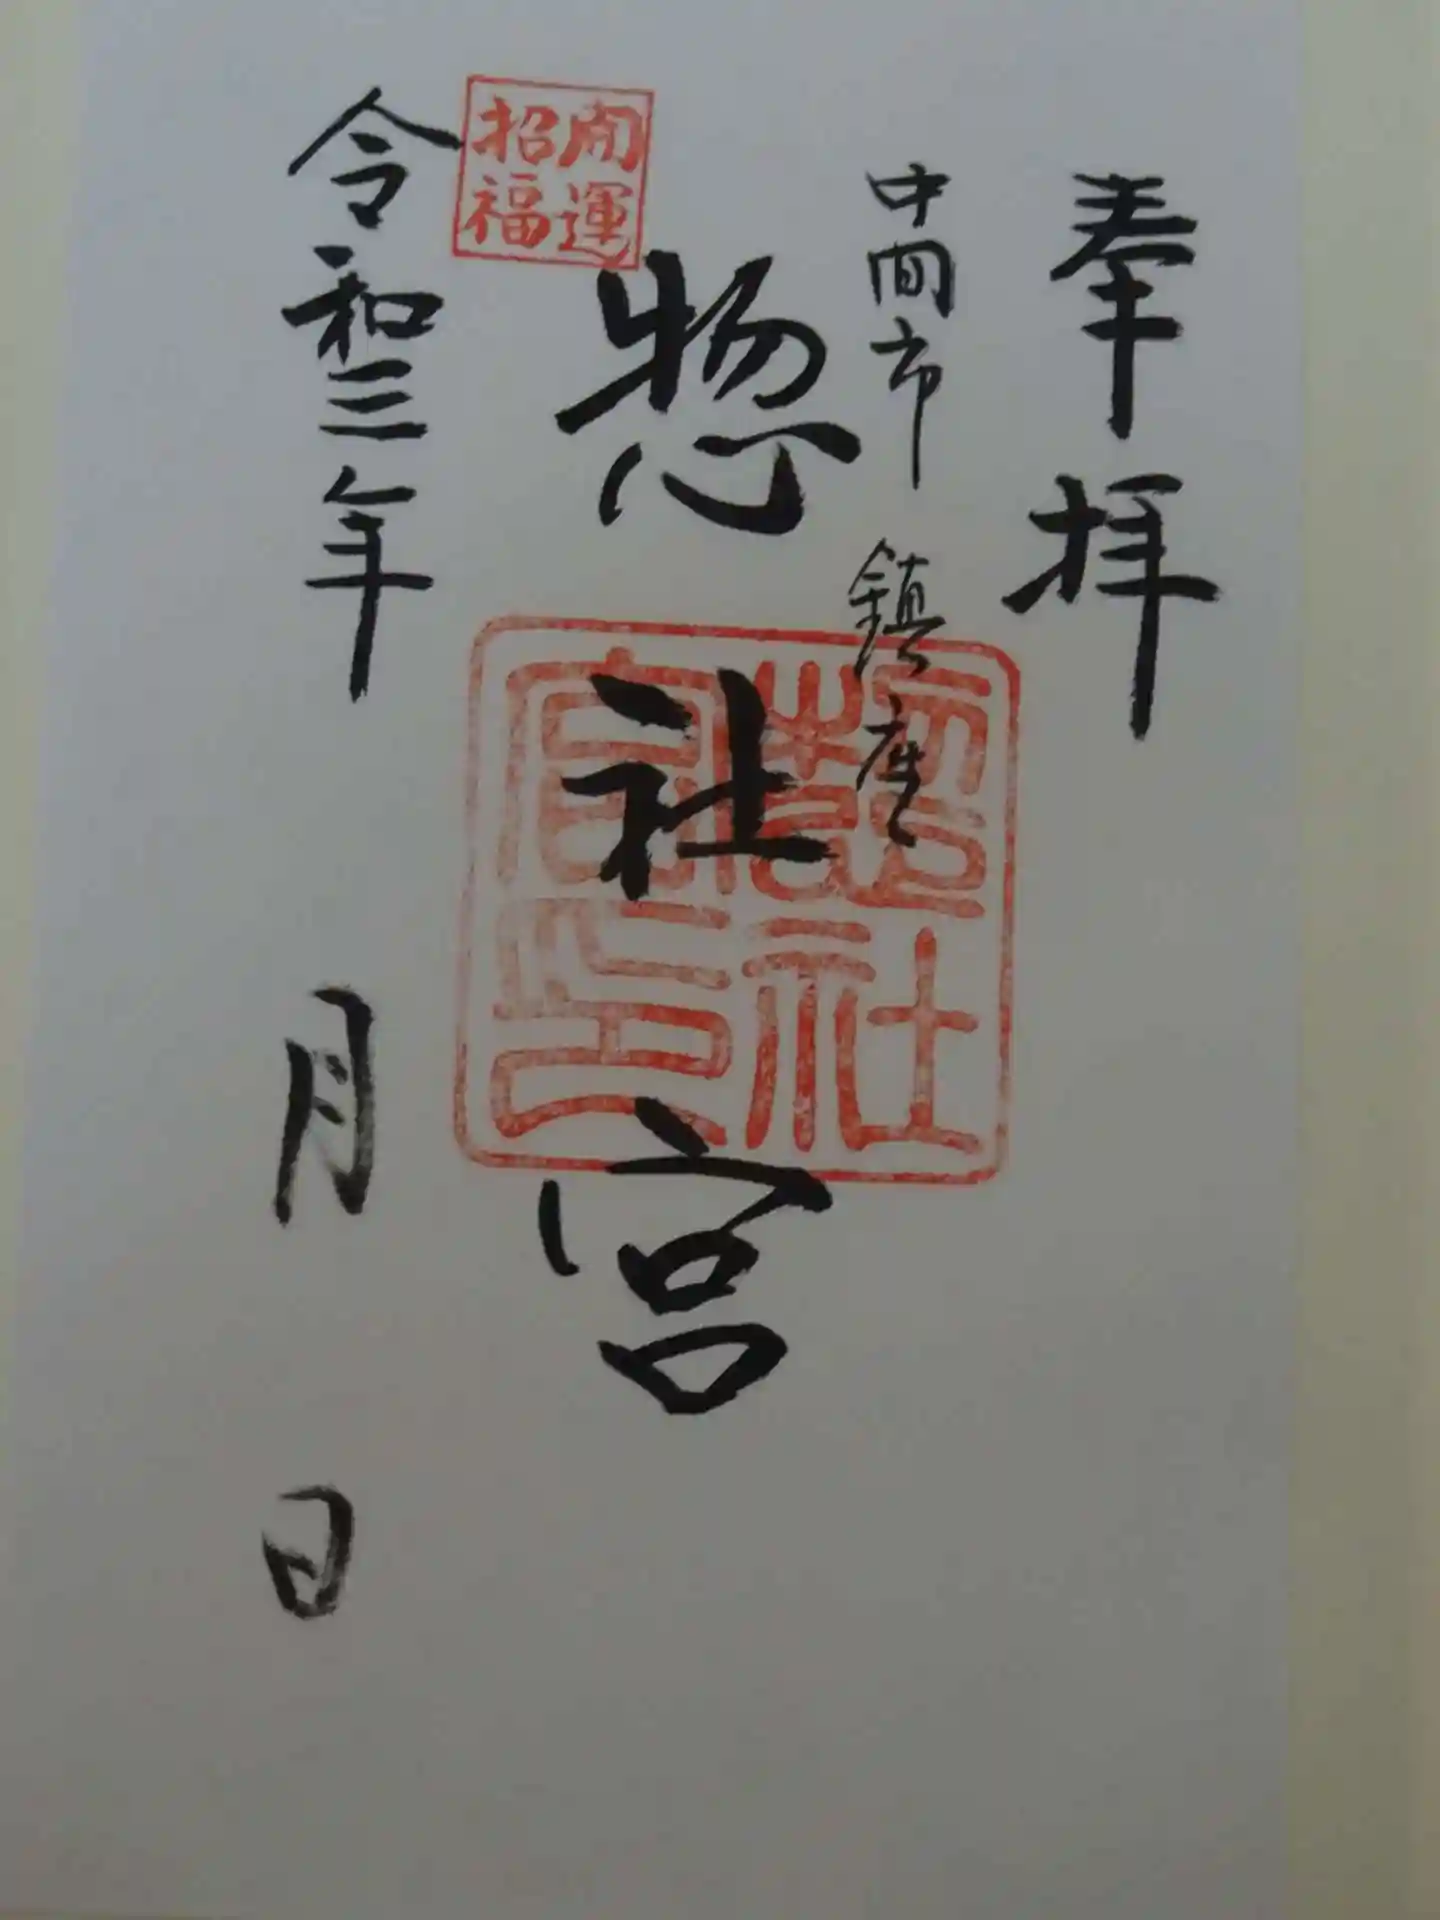 奉拝
中間市 鎮座
惣社宮
開運
招福
惣社
宮印
令和三年 月 日